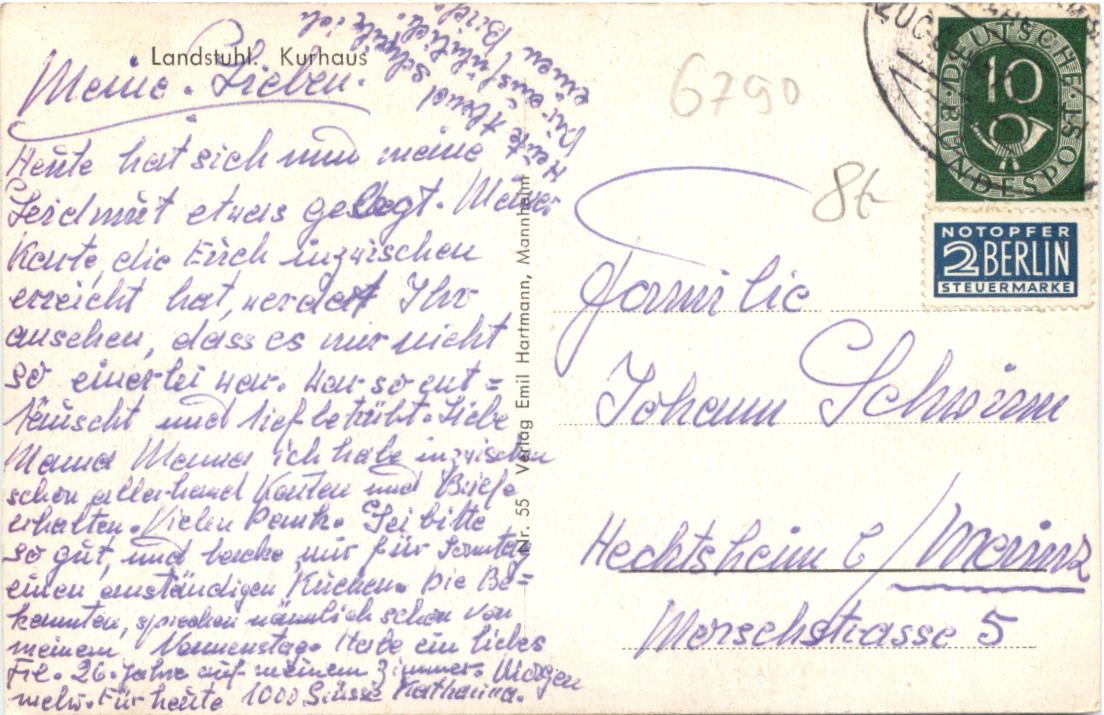 Landstuhl. Kurhaus
Meine Lieben.
Heute hat sich nun meine
etwas gelegt. Meiner
Karte, die Euch inzwischen
erreicht hat, werdet Ihr
ansehen, dass es mir nicht
so einerlei war. War so ent=
täuscht und tief betrübt. Liebe
Mama Mama ich habe inzwischen
schon allerhand Karten und Briefe
erhalten. Vielen Dank. Sei bitte
so gut, und backe mir für Sonntag
einen anständigen Kuchen. Die Be=
kannten, sprechen nämlich schon von
meinem Namenstag. Habe ein liebes
Frl. 26. Jahre auf meinem Zimmer. Morgen
mehr. Für heute 1000 Süsse Katharina.
Heute Abend schreibe ich
ausführlichen
einen Brief.
Nr. 55 Verlag Emil Hartmann, Mannheim
6790
DEUTSCHE BUNDESPOST
10
NOTOPFER
2 BERLIN
STEUERMARKE
Familie
Johann Schwinn
Hechtsheim b/Mainz
Morschstrasse 5